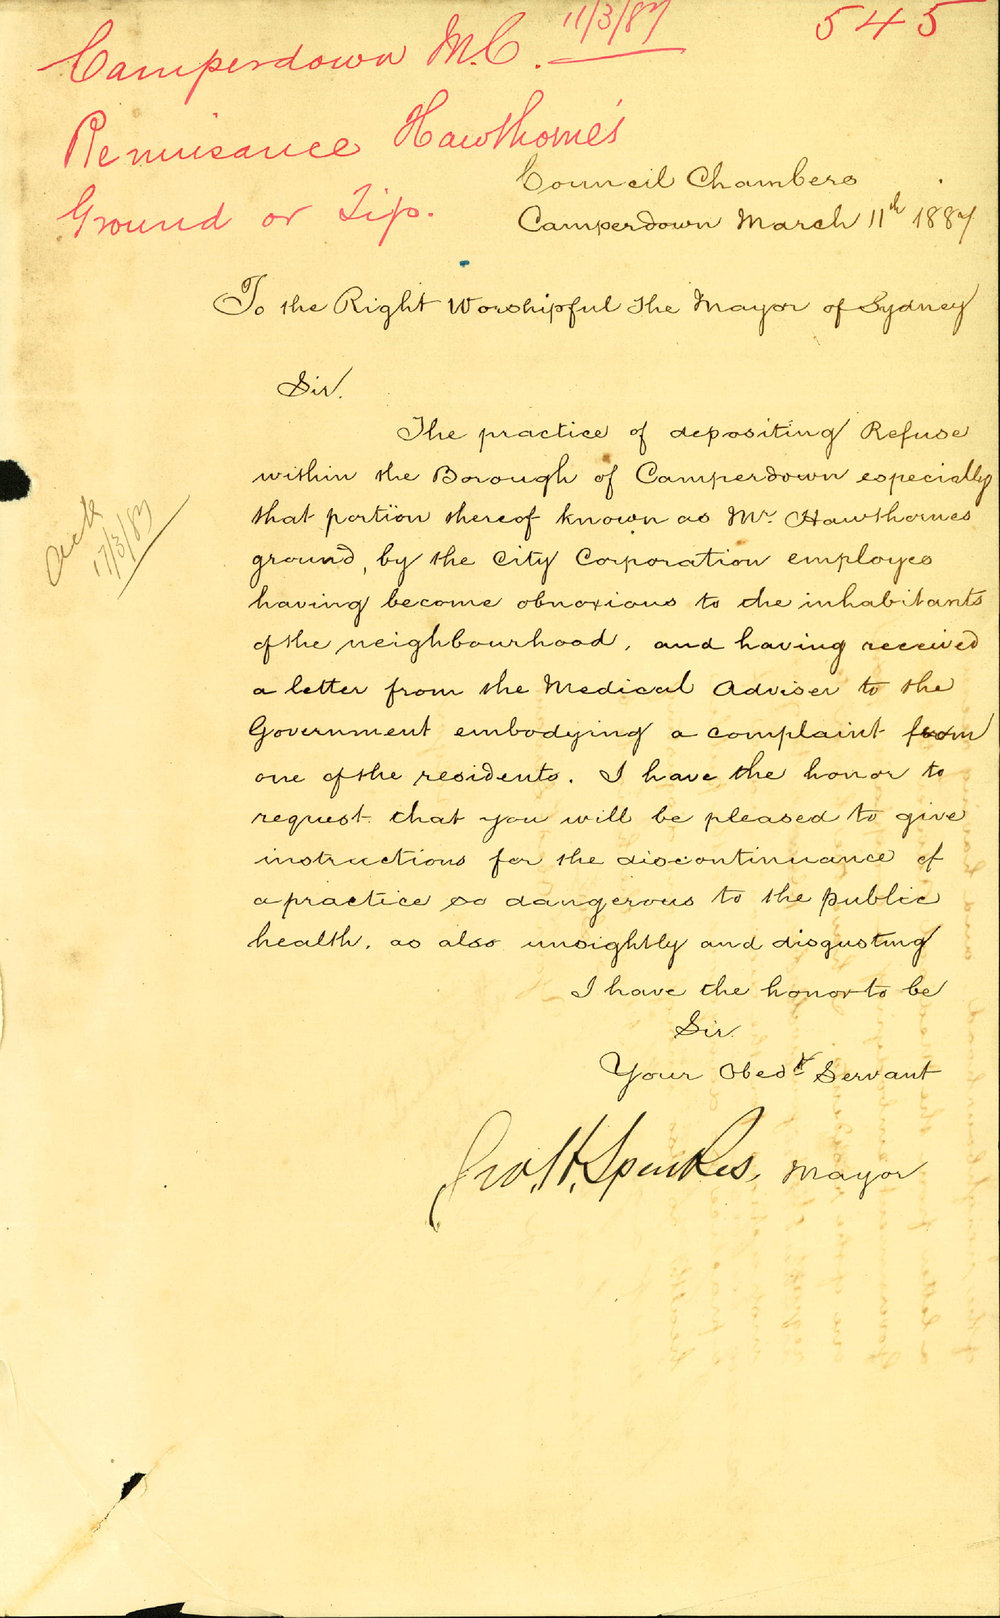 Camperdown M.C. 11/3/87
545
Re nuisance Hawthorne's
Ground or Tip.
Council Chambers
Camperdown March 11th 1887
To the Right Worshipful The Mayor of Sydney
Sir.
The practice of depositing Refuse
within the Borough of Camperdown especially
that portion thereof known as Mr. Hawthornes
ground, by the City Corporation employes
having become obnoxious to the inhabitants
of the neighbourhood, and having received
a letter from the Medical Adviser to the
Government embodying a complaint from
one of the residents. I have the honor to
request that you will be pleased to give
instructions for the discontinuance of
a practice so dangerous to the public
health, as also unsightly and disgusting
I have the honor to be
Sir.
Your Obedt. Servant
H. Mayor
Ack
17/3/87